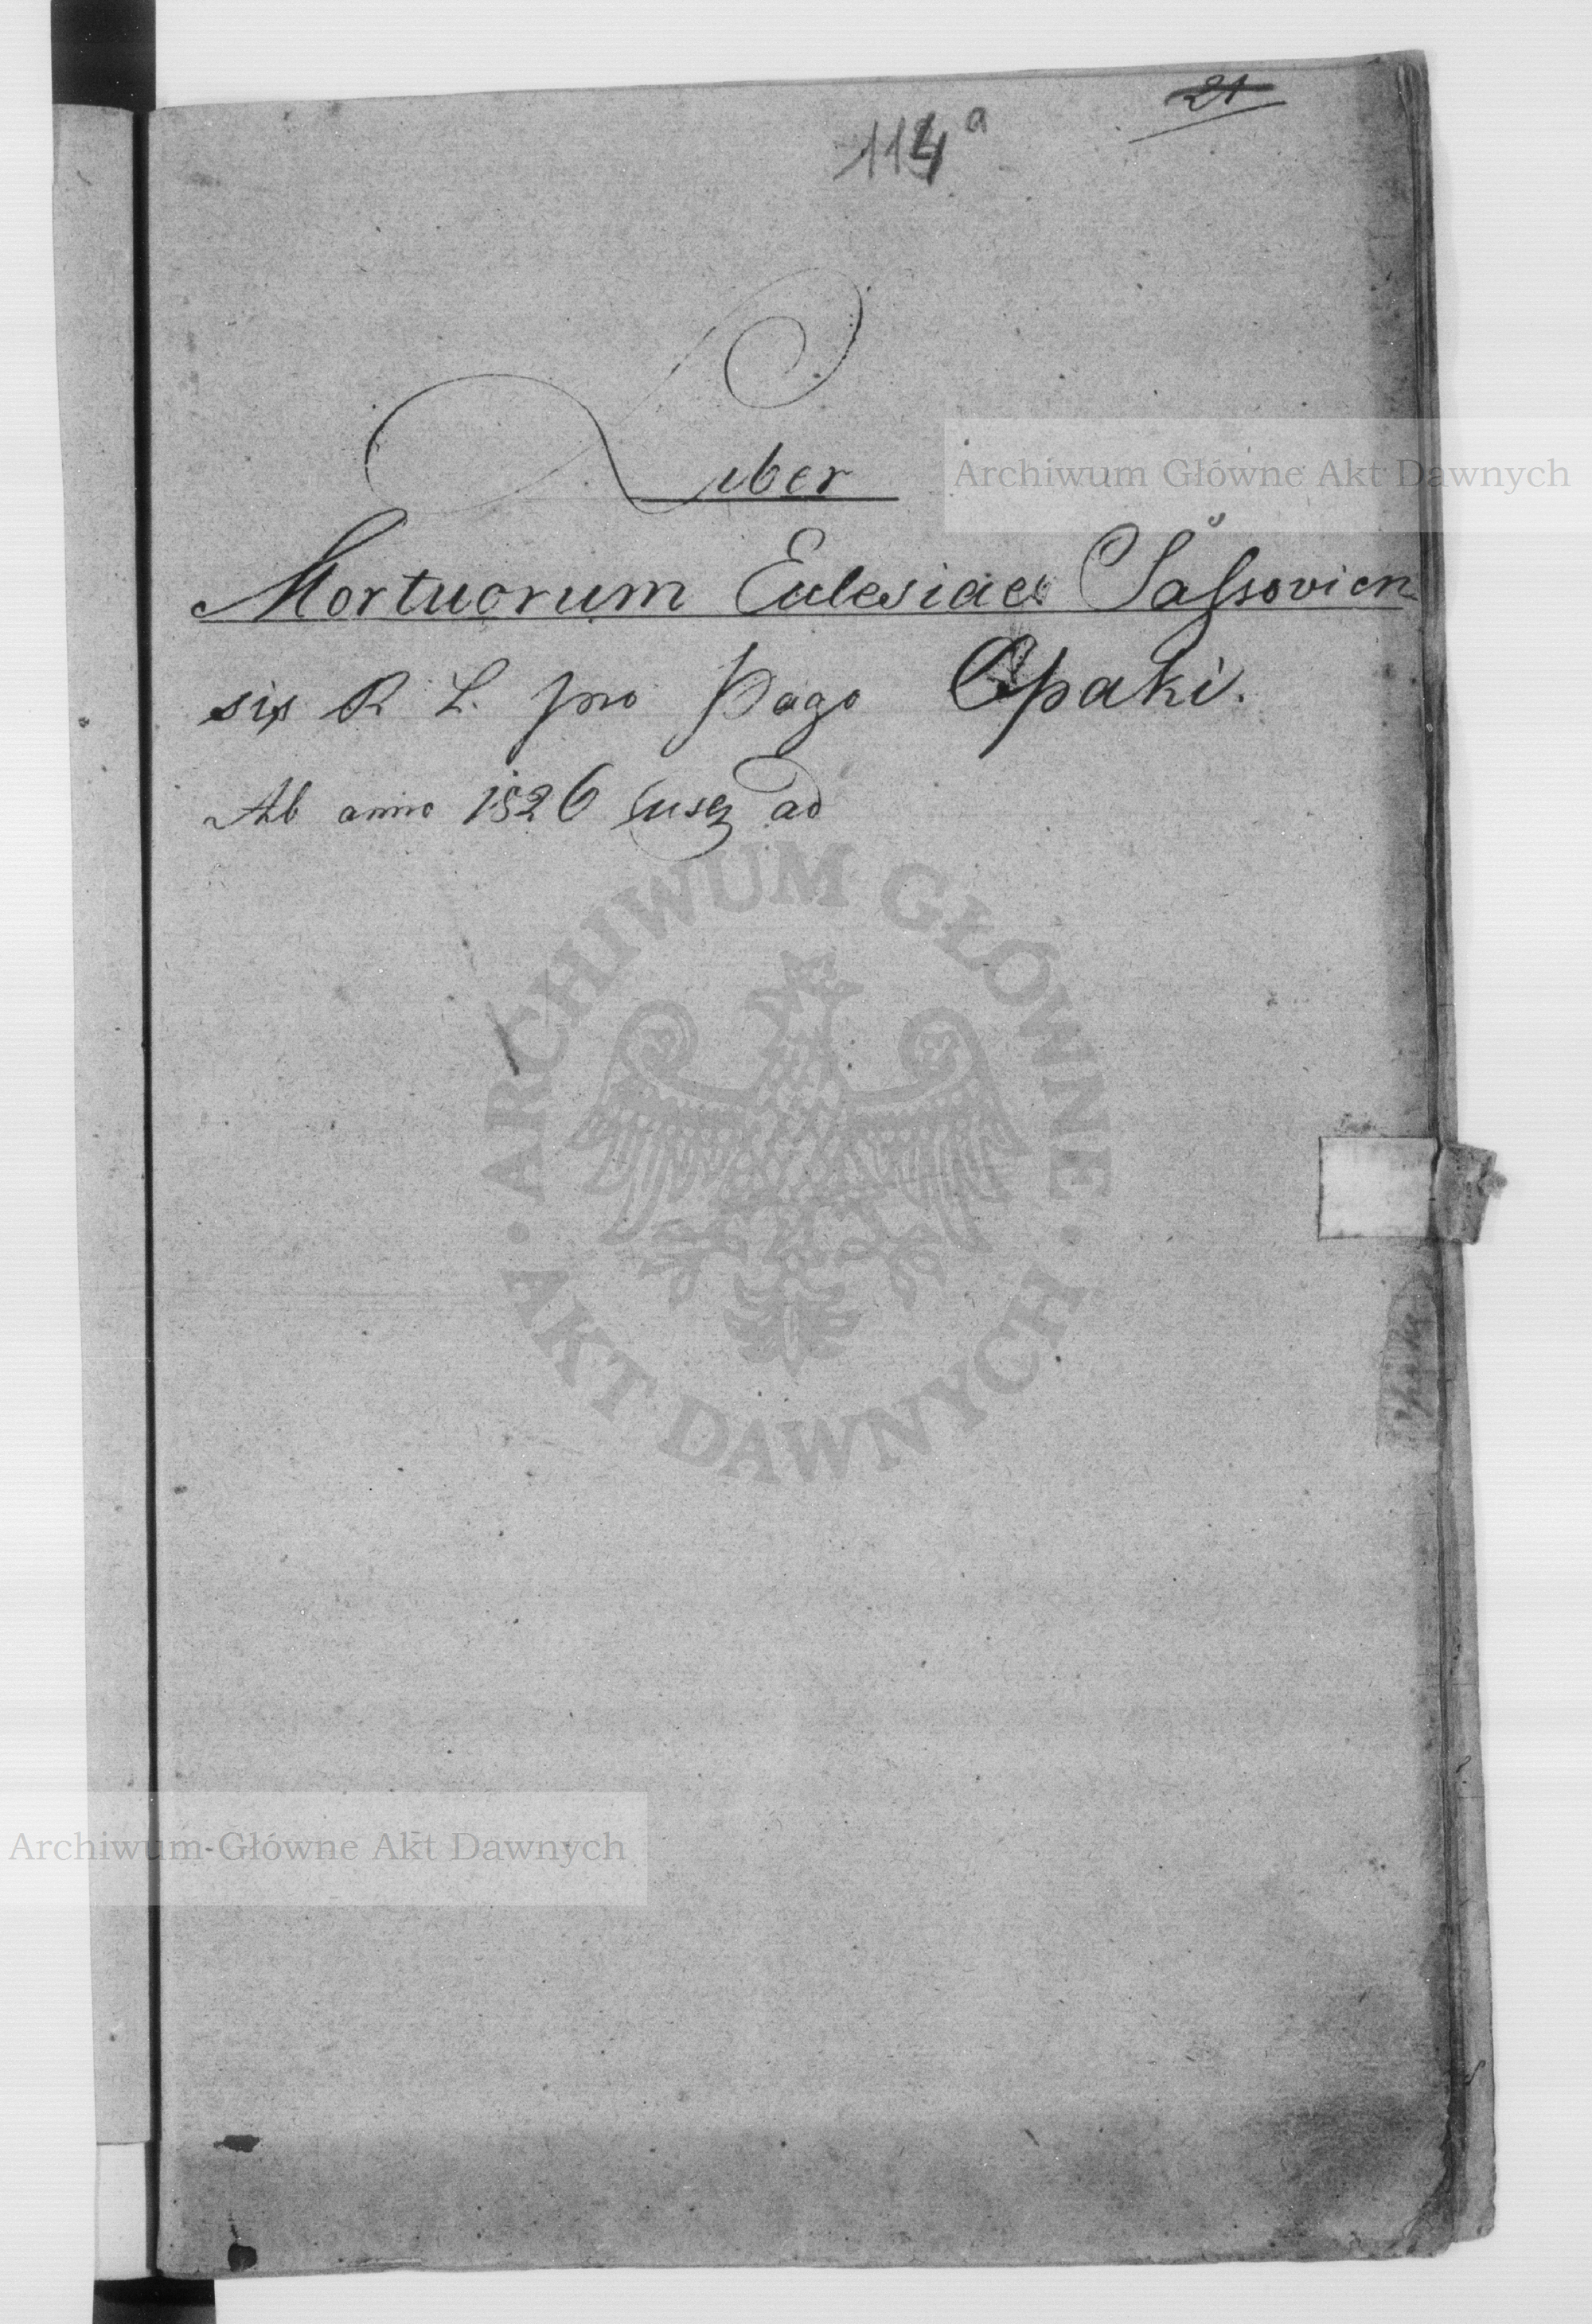 21
114 a
Liber
Archiwum Główne Akt Dawnych
Mortuorum Eclesiae Saſsovien
sis R. L. pro Pago Opaki.
Ab anno 1826 usq ad
ARCHIWUM GŁÓWNE
AKT DAWNYCH
Archiwum Główne Akt Dawnych